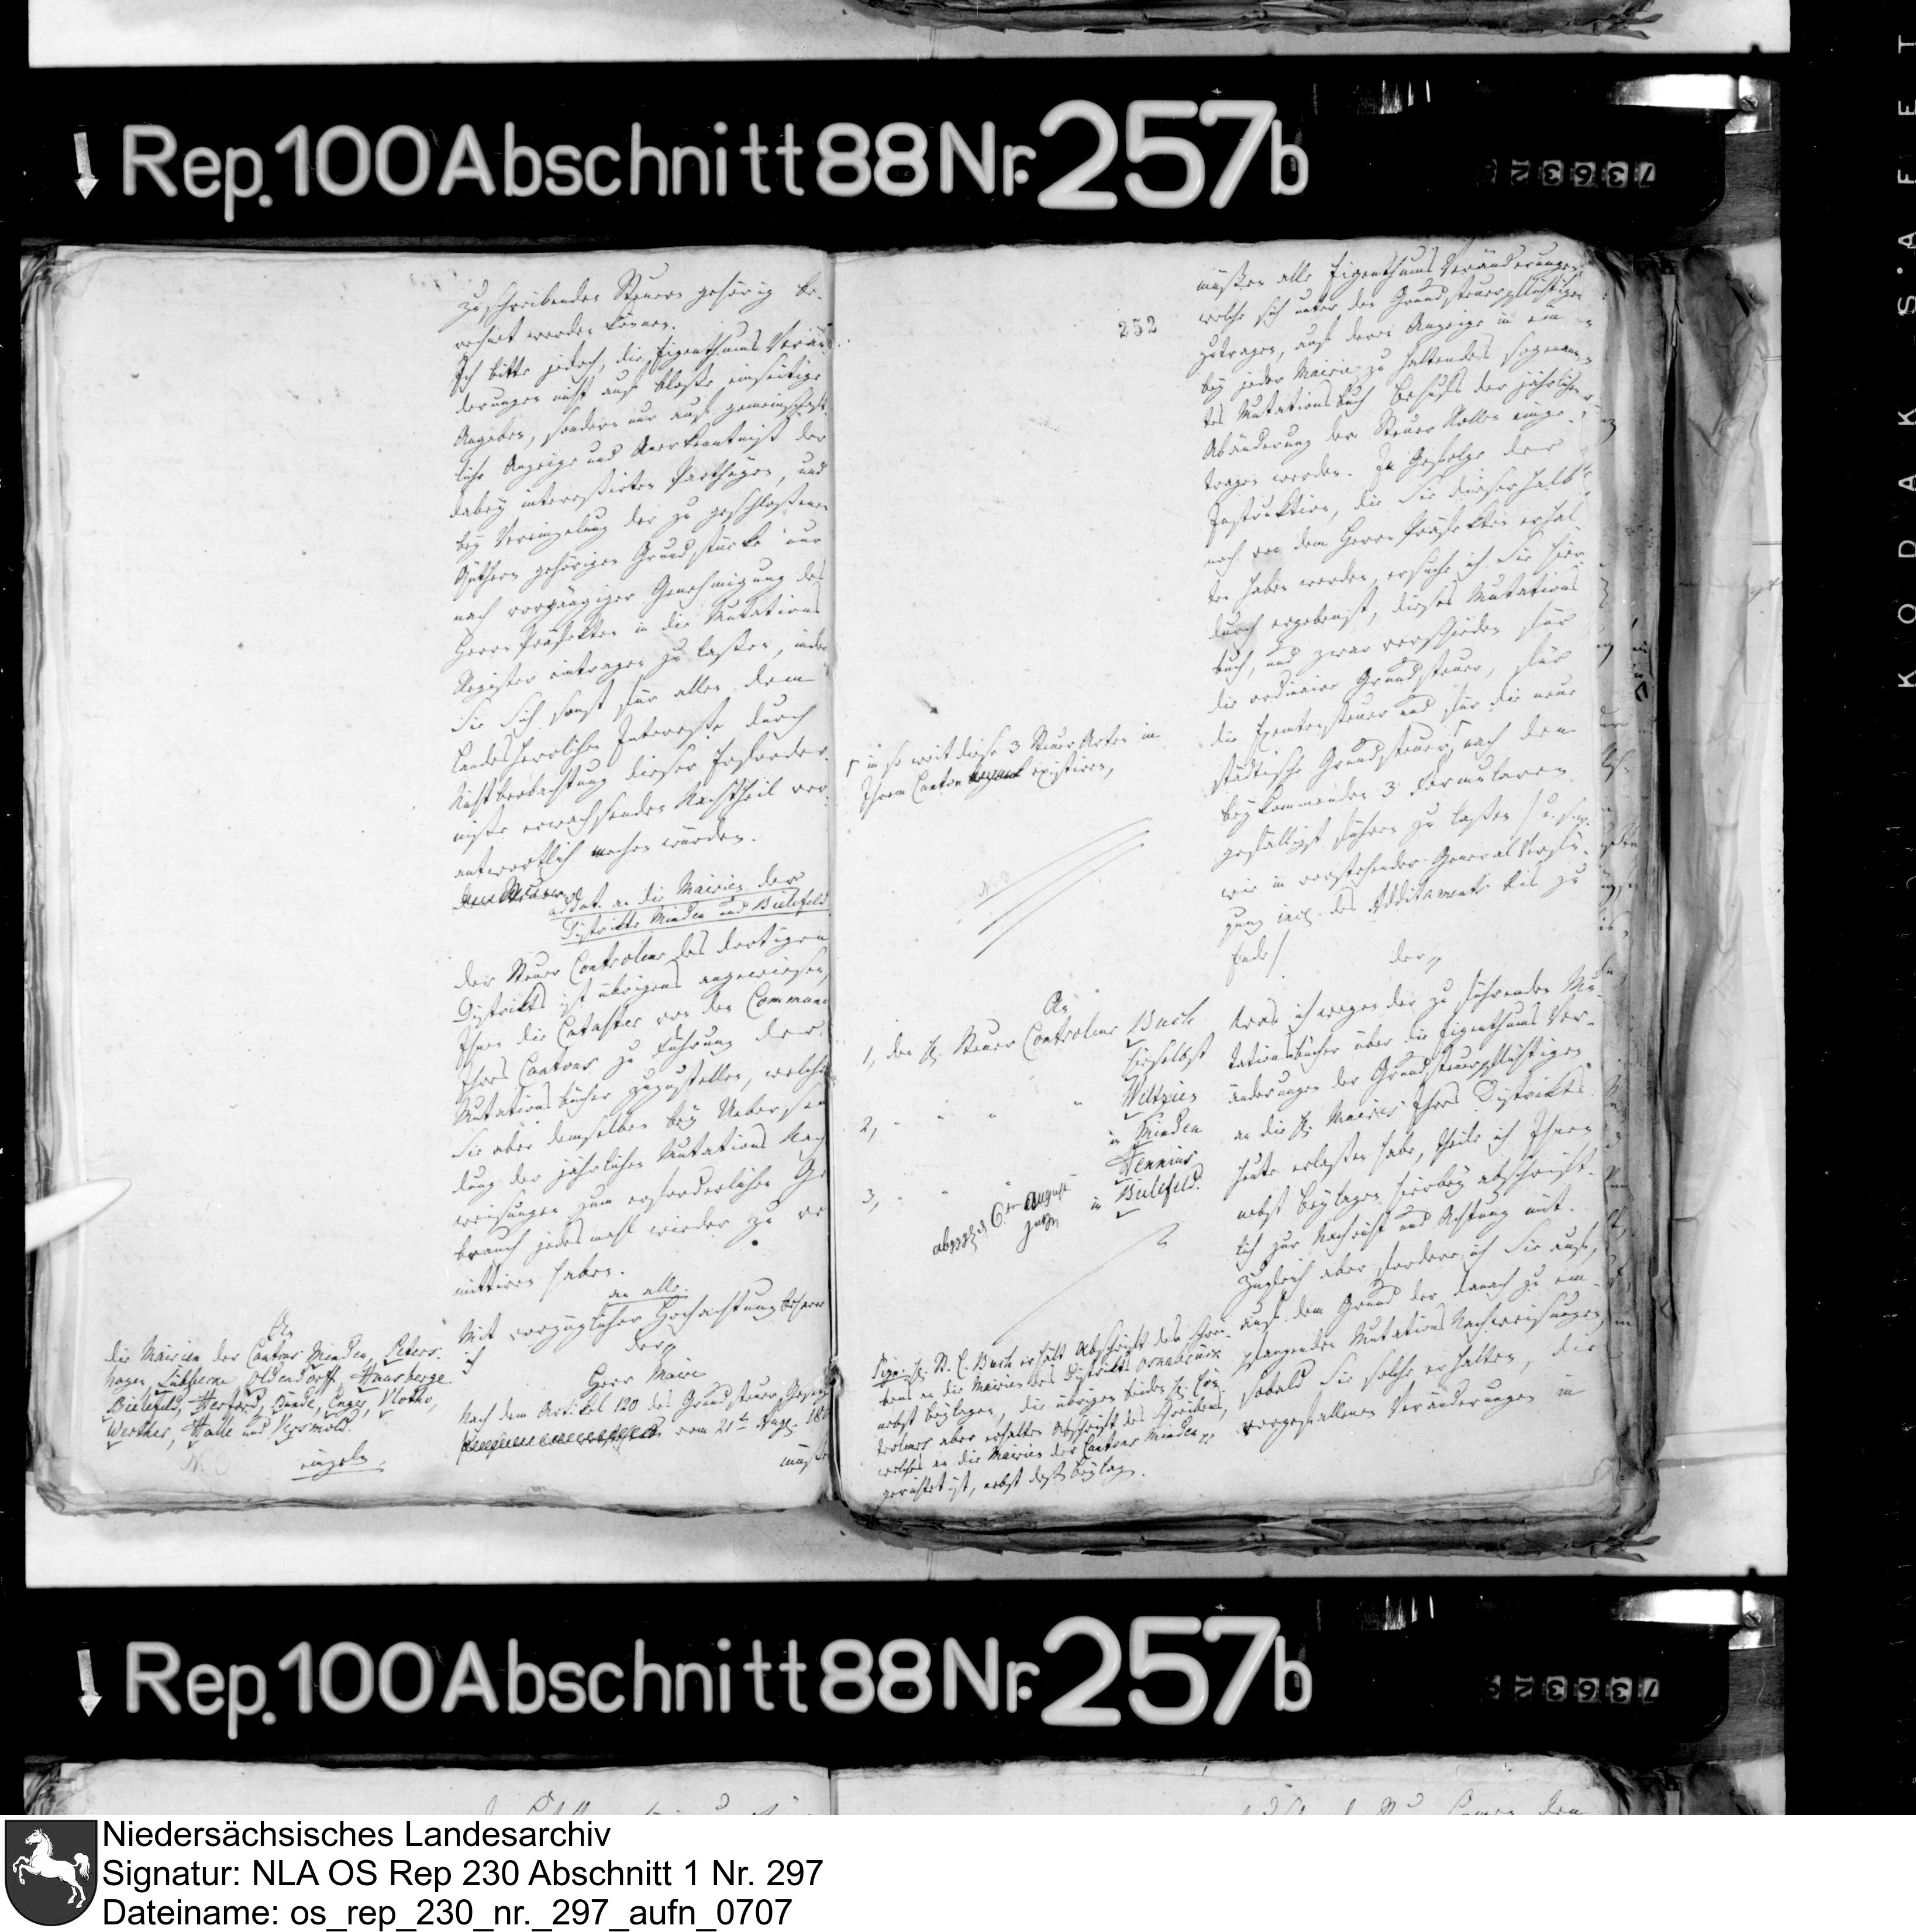 Rep. 100 Abschnitt 88 Nr. 257b
zuschreibenden Steuern gehörig be-
rechnet werden können.
Ich bitte jedoch, die Eigenthums Verän-
derungen nicht auf bloße einseitige
Angaben, sondern nur auf gemeinschaft-
liche Anzeige und Anerkenntniß der
dabey interessirten Partheyen, und
bey Vereinzelung der zu geschloßenen
Güthern gehörigen Grundstücke nur
nach vorgängiger Genehmigung des
Herrn Präfekten in die Mutations
Register eintragen zu laßen, indem
Sie Sich sonst für allen dem
Landesherrlichen Interesse durch
Nichtbeobachtung dieser Erforder-
niße erwachsenden Nachtheil ver-
antwortlich machen würden.
addat. an die Mairien der
Distrikte Minden und Bielefeld
Der Steuer Controleur des dortigen
Distrikts ist übrigens angewiesen,
Ihnen die Cataster von den Communen
Ihres Cantons zu Führung der
Mutationsbücher zuzustellen, welche
Sie aber demselben bey Uebersen-
dung der jährlichen Mutations Nach-
weisungen zum erforderlichen Ge-
brauch jedes mahl wieder zu re-
mittiren haben.
an alle.
Mit vorzüglicher Hochachtung beharre
ich der
An
die Mairien der Cantons Minden, Peters-
hagen, Lübbecke, Oldendorff, Hausberge
Bielefeld, Herford, Bünde, Enger, Vlotho,
Werther, Halle und Versmold.
einzeln.
Herr Maire
Nach dem Artikel 120 des Grundsteuer Gesetzes
vom 21ten Aug. 180
müßen
252
müßen alle Eigenthums Veränderungen,
welche sich unter den Grundsteuerpflichtigen
zutragen, auf deren Anzeige in ein
bey jeder Mairie zu haltendes sogenann-
tes Mutationsbuch behufs der jährlichen
Abänderung der Steuer Rollen einge-
tragen werden. In Gefolge der
Instruktion, die Sie dieserhalb
noch von dem Herrn Präfekten erhal-
ten haben werden, ersuche ich Sie hier-
durch ergebenst, dieses Mutations
buch, und zwar verschieden für
die ordinaire Grundsteuer, für
die Exemtensteuer und für die neue
städtische Grundsteuer, nach den
beykommenden 3 Formularen
gefälligst führen zu laßen / u.s.w.
wie in vorstehender General Verfü-
gung incl. des Additaments bis zu
Ende /
der
in so weit diese 3 Steuer Arten in
Ihrem Canton existiren,
An
1, den H. Steuer Controleur Buch
hieselbst
2, " " " " Veltzien
in Minden
3, " " " Hennius
in Bielefeld.
abgeg. d. 6ten August
Was ich wegen der zu führenden Mu-
tationsbücher über die Eigenthums Ver-
änderungen der Grundsteuerpflichtigen
an die H. Maires Ihres Distrikts
heute erlaßen habe, theile ich Ihnen
nebst Beylagen hierbey abschrift-
lich zur Nachricht und Achtung mit.
Zugleich aber fordere ich Sie auf,
auf dem Grund der danach zu em-
pfangenden Mutations Nachweisungen,
sobald Sie solche erhalten, die
vorgefallenen Veränderungen in
H. St. C. Buch erhält Abschrift des Schrei-
bens an die Mairien des Distrikts Osnabrück
nebst Beylagen, die übrigen beiden H. Con-
troleurs aber erhalten Abschrift des Schreibens,
welches an die Mairien der Cantons Minden pp
gerichtet ist, nebst deß Beylag.
Rep. 100 Abschnitt 88 Nr. 257b
KODAK
Niedersächsisches Landesarchiv
Signatur: NLA OS Rep 230 Abschnitt 1 Nr. 297
Dateiname: os_rep_230_nr._297_aufn_0707